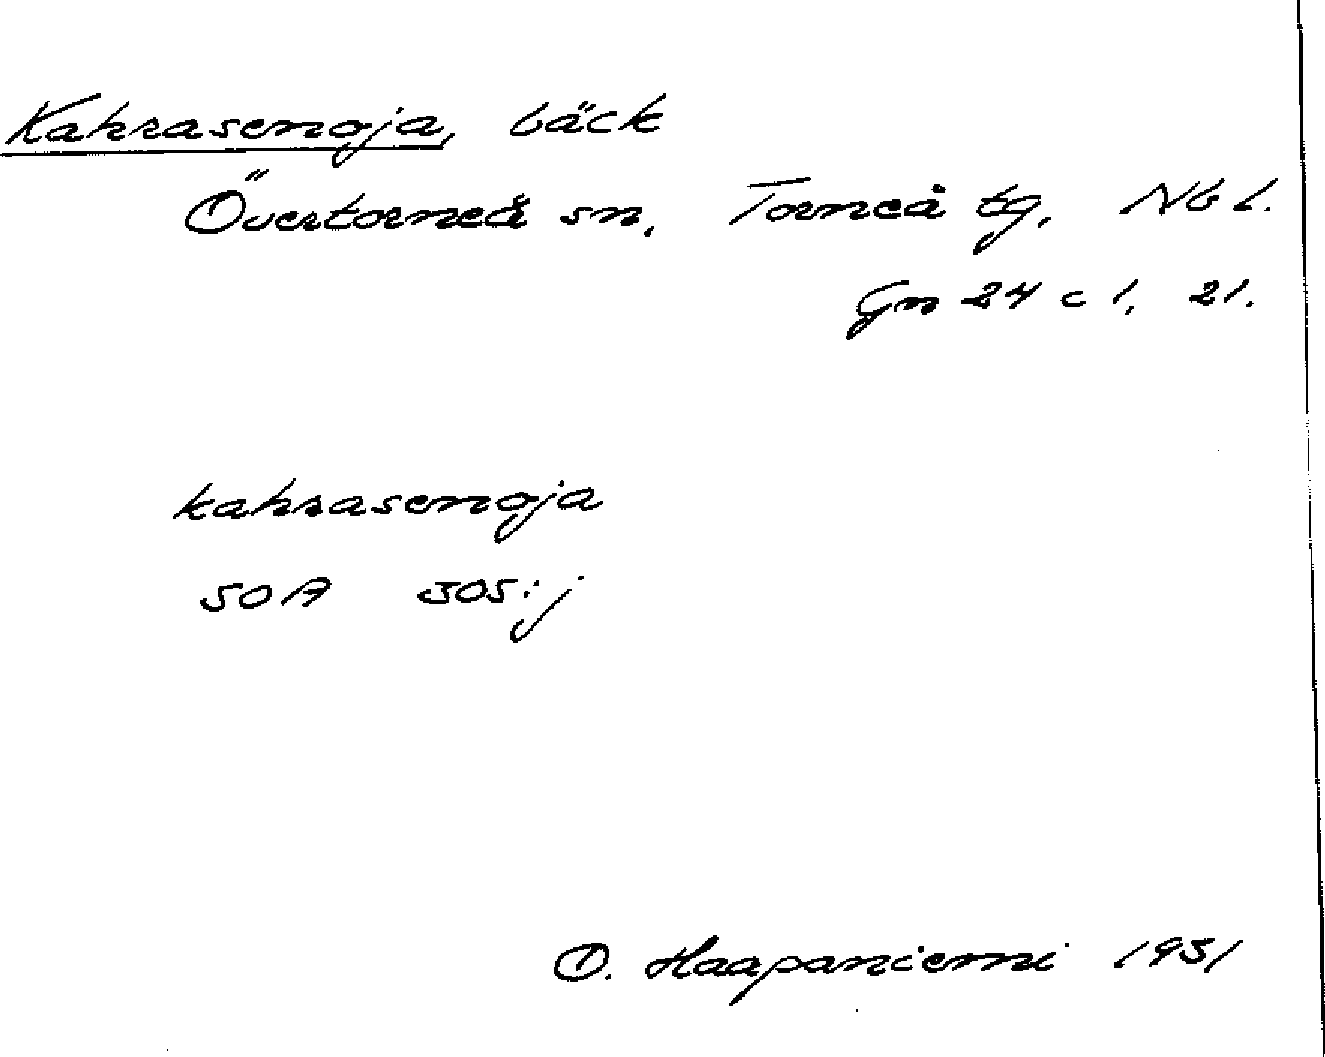 Kahrasenoja, bäck
Övertorneå sn, Torneå tg, Nb l.
Gn 24 c 1, 21.
kahrasenoja
SOA 305:j
O. Haapaniemi 1931